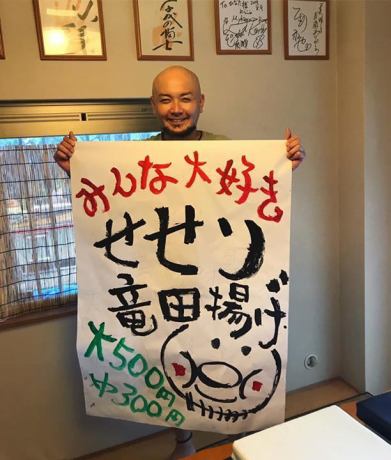 みんな大好き
せせり
竜田揚げ
大500円
中300円